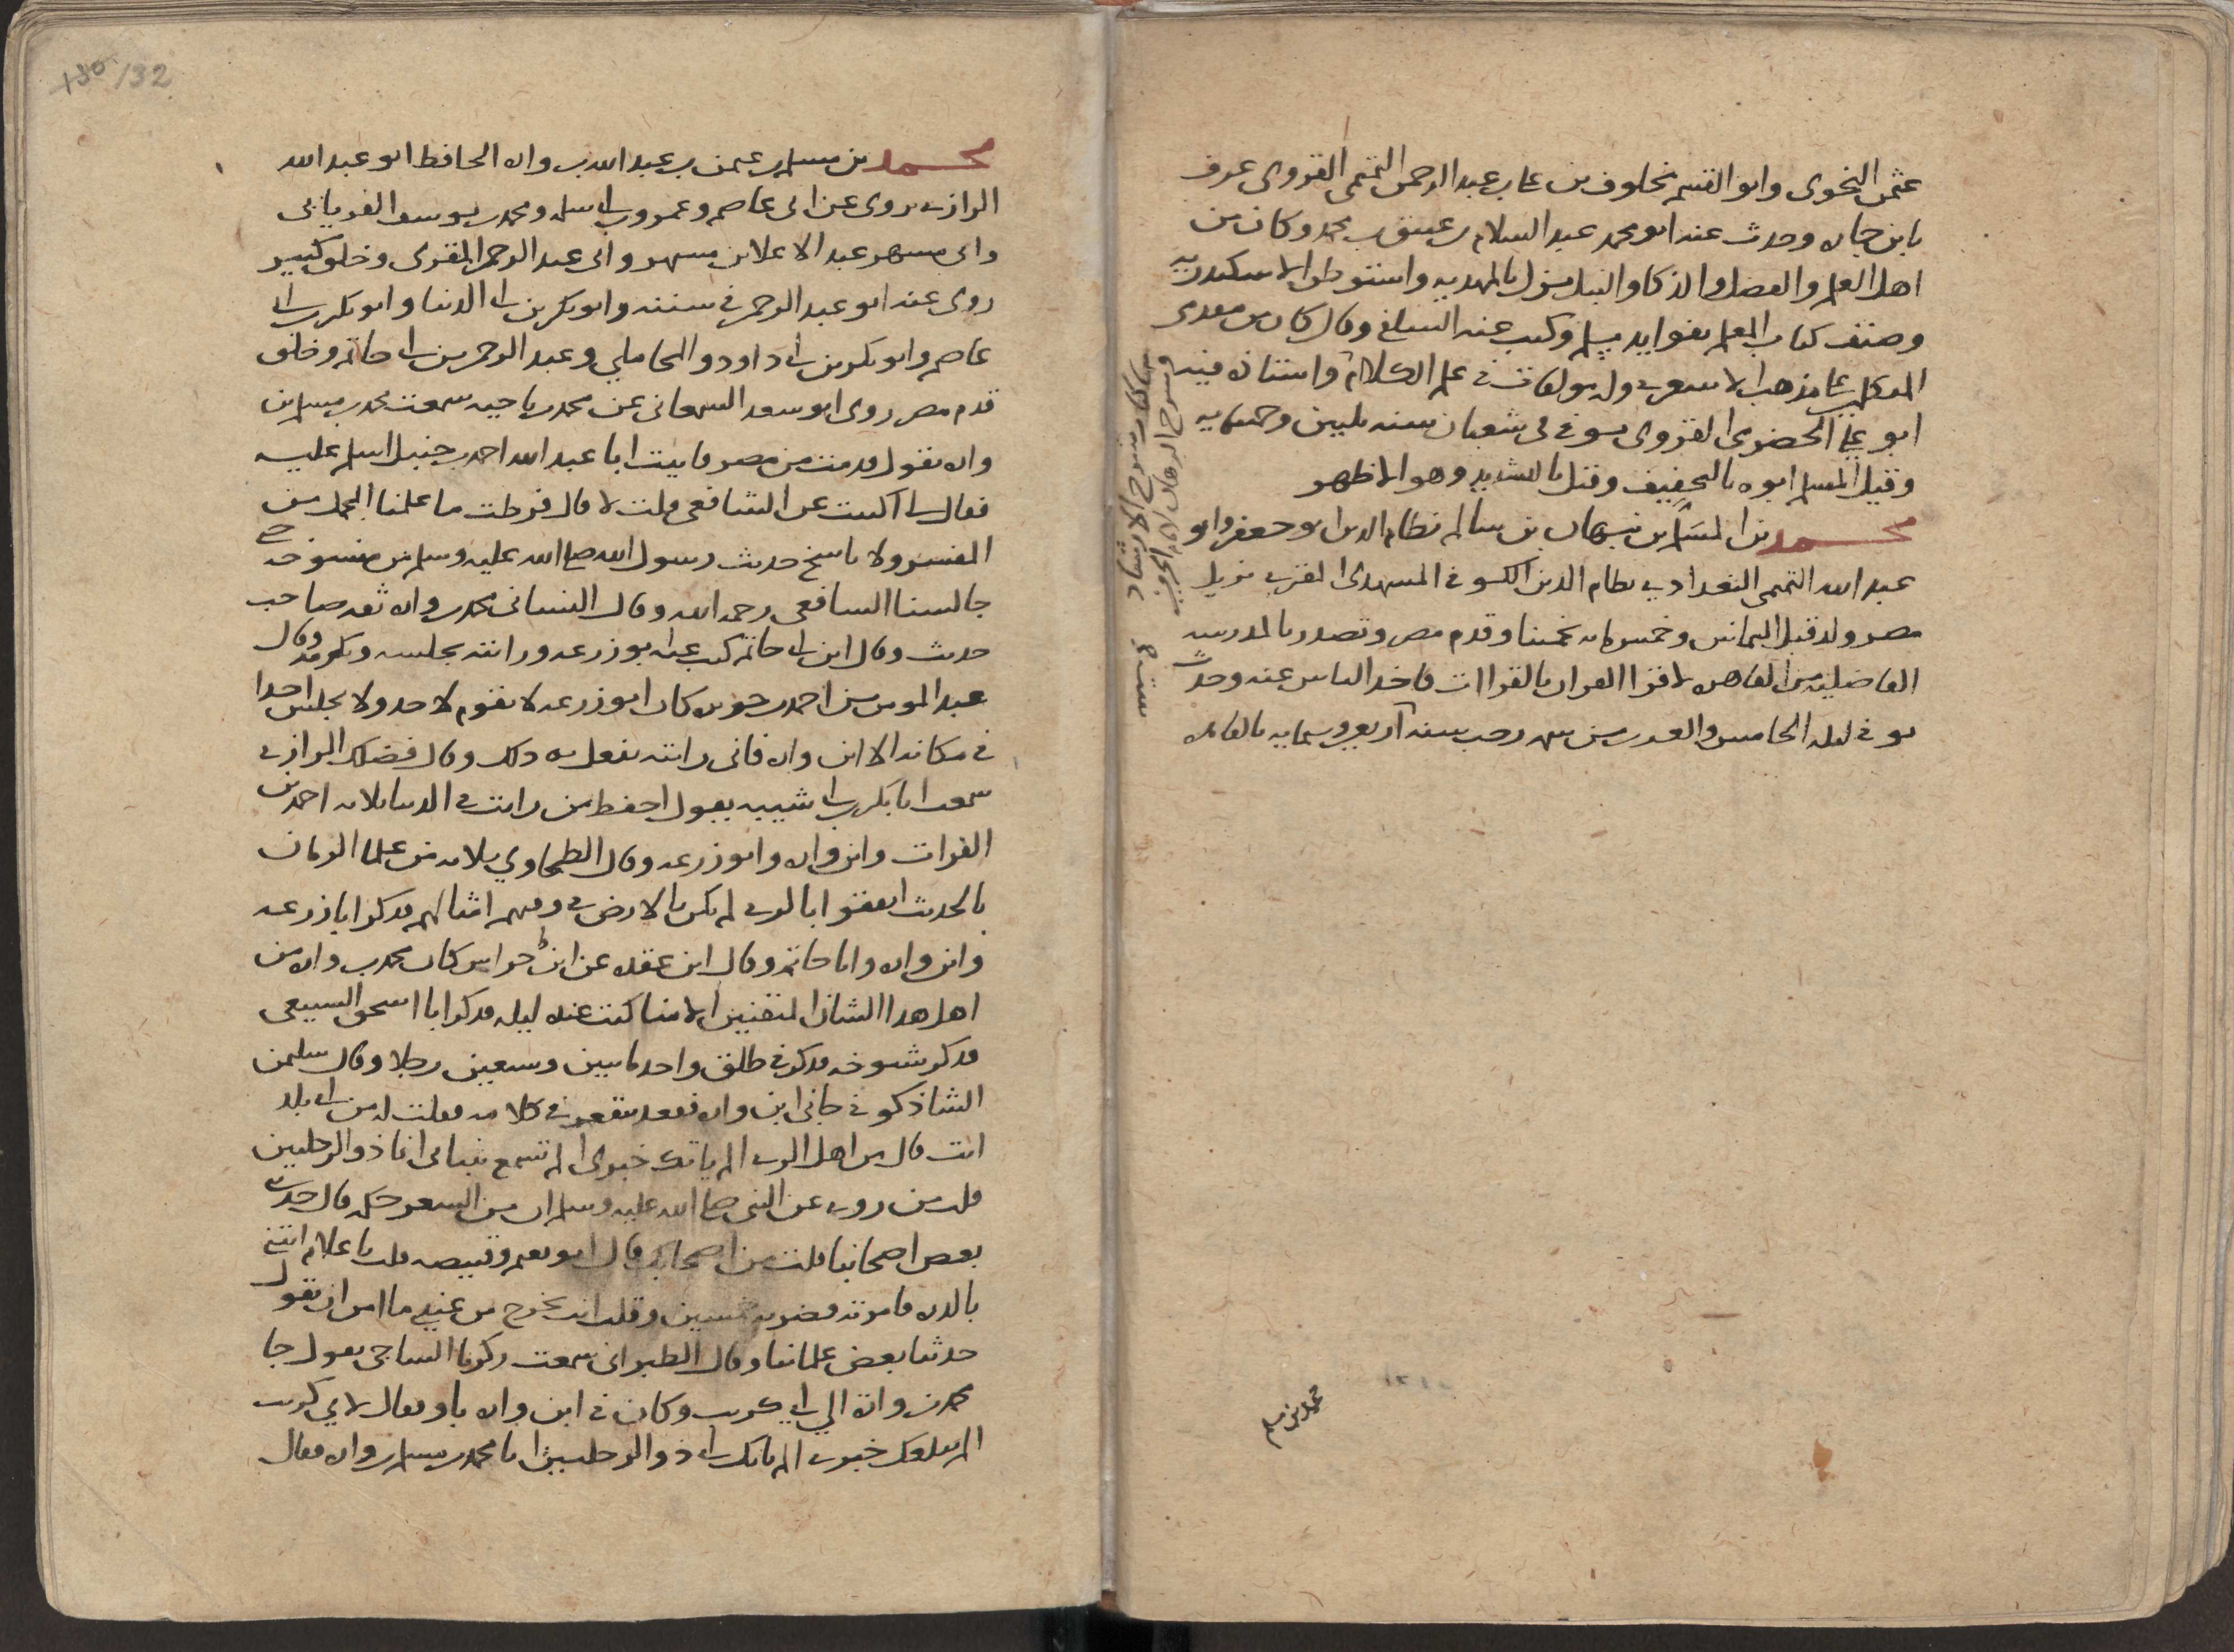 عثمن النحوى وابو القسم مخلوف بن على بن عبد الرحمن التميمى القروى عرف
بابن جاره وحدث عنه ابو محمد عبد السلام بن عتيق بن محمد وكان من
اهل العلم والفضل والذكا والنبل نزل بالمهديه واستوطن الاسكندريه
وصنف كتاب المعلم بفوايد مسلم وكتب عنه السلفى وقال كان من مقدمى
المتكلمين على مذهب الاشعرى وله مولفات فى علم الكلام واستاذه فيه
ابو على الحضرمى القروى توفى فى شعبان سنه ثلثين وخمسمايه
وقيل المسلم ابوه بالتخفيف وقيل بالتشديد وهو الاظهر
محمد بن المسلم بن نبهان بن سالم نظام الدين ابو جعفر وابو
عبد الله التميمى البغدادى نظام الدين الكوفى المقرى نزيل
مصر ولد قبل الثمانين وخمس مايه تخمينا وقدم مصر وتصدر بالمدرسه
الفاضليه من القاهره لاقرا القران بالقراات فاخذ الناس عنه وحدث
توفى ليله الخامس والعشرين من شهر رجب سنه اربع وستمايه بالقاهره
وشرح البرهان لابى المعالى الجوينى
محمد بن مسلم
130/32
محمد بن مسلم بن عثمن بن عبد الله بن واره الحافظ ابو عبد الله
الرازى روى عن ابى عاصم وعمرو بن ابى سلمه ومحمد بن يوسف الفريابى
وابى مسهر عبد الاعلا بن مسهر وابى عبد الرحمن المقرى وخلق كثير
روى عنه ابو عبد الرحمن فى سننه وابو بكر بن ابى الدنيا وابو بكر بن ابى
عاصم وابو بكر بن ابى داود والمحاملي وعبد الرحمن بن ابى حاتم وخلق
قدم مصر روى ابو سعد السمعانى عن محمد بن ناجيه سمعت محمد بن مسلم بن
واره يقول قدمت من مصر فاتيت ابا عبد الله احمد بن حنبل اسلم عليه
فقال لى اكتبت عن الشافعى قلت لا قال فرطت ما علمنا المجمل من
المفسر ولا ناسخ حديث رسول الله صلى الله عليه وسلم من منسوخه حتى
جالسنا الشافعى رحمه الله وقال النسائى محمد بن واره ثقه صاحب
حديث وقال ابن ابى حاتم كتب عنه ابو زرعه ورايته يجلسه ويكرمه وقال
عبد المومن بن احمد بن حوثره كان ابو زرعه لا يقوم لاحد ولا يجلس احدا
فى مكانه الا ابن واره فانى رايته يفعل به ذلك وقال فضلك الرازى
سمعت ابا بكر بن ابى شيبه يقول احفظ من رايت فى الدنيا ثلاثه احمد بن
الفرات وابن واره وابو زرعه وقال الطحاوي ثلاثه من علما الزمان
بالحديث اتفقوا بالرى لم يكن بالارض فى وقتهم امثالهم فذكر ابا زرعه
وابن واره وابا حاتم وقال ابن عقده عن ابن خراش كان محمد بن واره من
اهل هذا الشان المتقنين الامنا كنت عنده ليله فذكر ابا اسحق السبيعى
فذكر شيوخه فذكر فى طلق واحد مايتين وسبعين رجلا وقال سليمن
الشاذكونى جانى ابن واره فقعد يتقعر فى كلامه فقلت له من اى بلد
انت قال من اهل الرى الم ياتك خبرى الم تسمع بنبائى انا ذو الرحلتين
قلت من روى عن النبى صلى الله عليه وسلم ان من الشعر حكمه قال حدثنى
بعض اصحابنا قلت من اصحابك قال ابو نعيم وقبيصه قلت يا غلام ائتنى
بالدره فامرته فضربه خمسين وقلت انت تخرج من عندى ما امن ان تقول
حدثنا بعض علماننا وقال الطبرانى سمعت زكريا الساجى يقول جا
محمد بن واره الي ابى كريب وكان فى ابن واره باو فقال لابي كريب
الم يبلغك خبرى الم ياتك نباى ذو الرحلتين انا محمد بن مسلم بن واره فقال